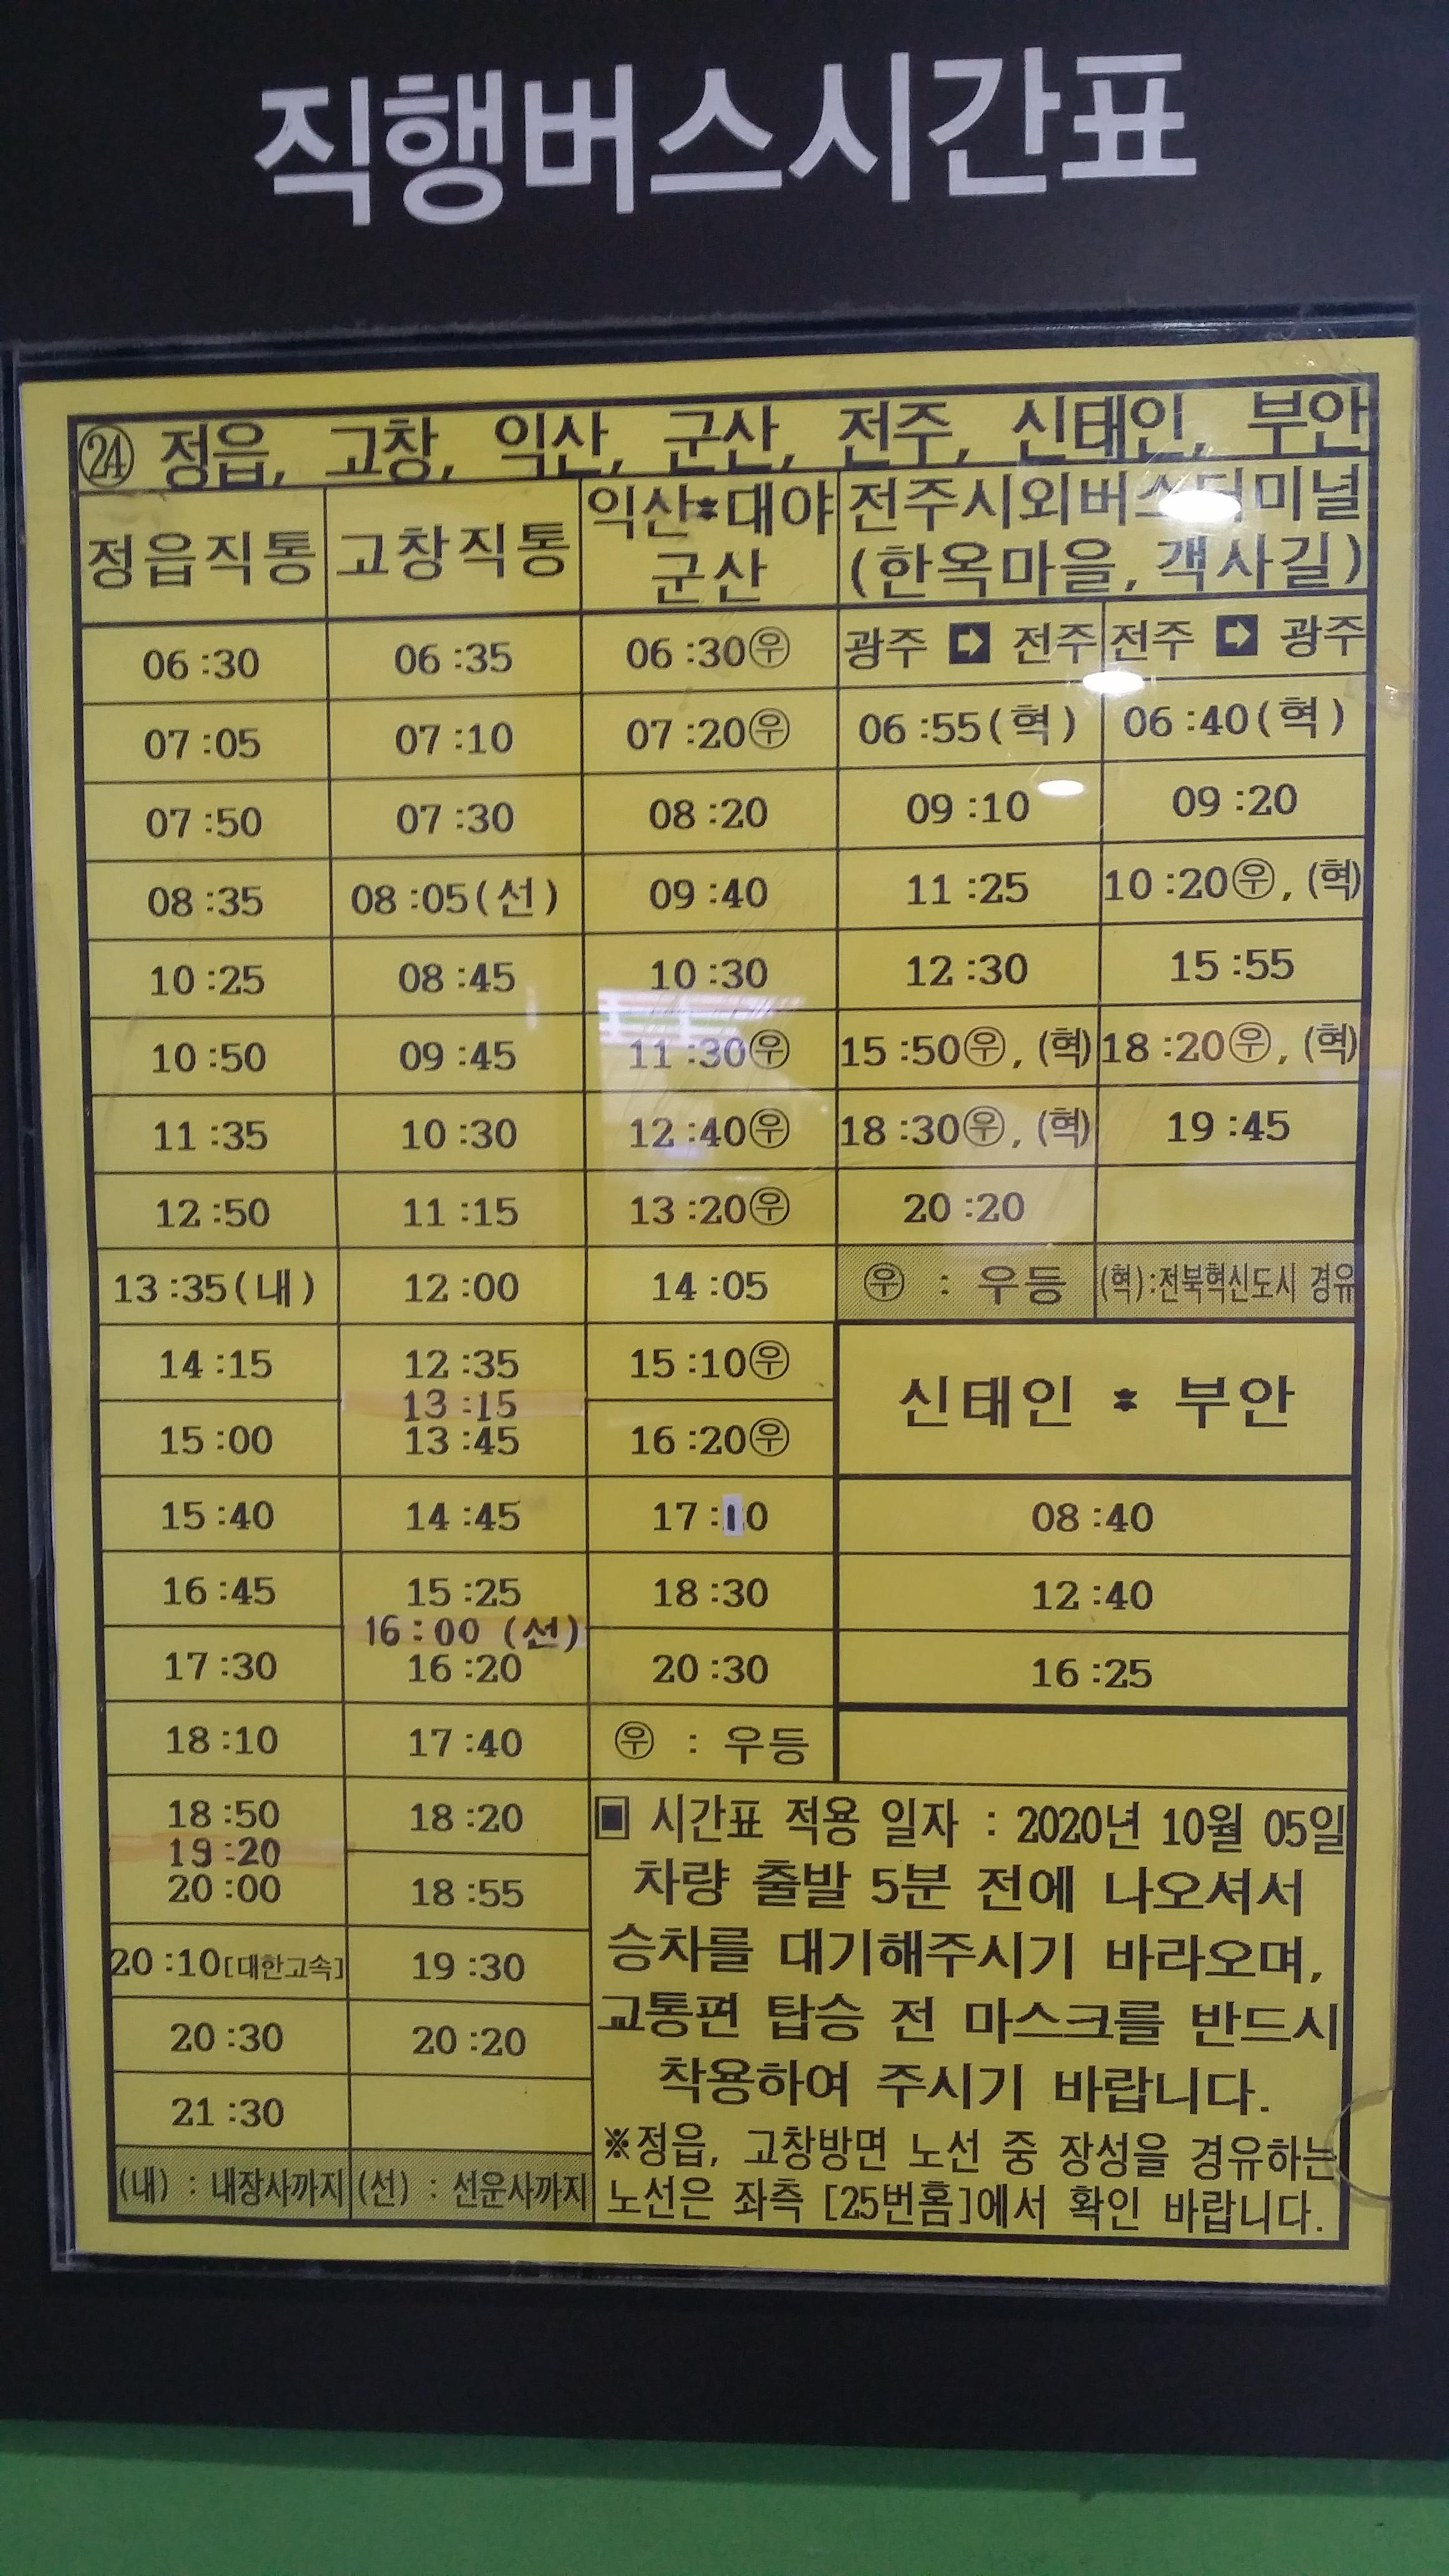 직행버스시간표
㉔ 정읍, 고창, 익산, 군산, 전주, 신태인, 부안
정읍직통
06:30
07:05
07:50
08:35
10:25
10:50
11:35
12:50
13:35(내)
14:15
15:00
15:40
16:45
17:30
18:10
18:50
19:20
20:00
20:10[대한고속]
20:30
21:30
(내) : 내장사까지
고창직통
06:35
07:10
07:30
08:05(선)
08:45
09:45
10:30
11:15
12:00
12:35
13:15
13:45
14:45
15:25
16:00 (선)
16:20
17:40
18:20
18:55
19:30
20:20
(선) : 선운사까지
익산*대야
군산
06:30㉾
07:20㉾
08:20
09:40
10:30
11:30㉾
12:40㉾
13:20㉾
14:05
15:10㉾
16:20㉾
17:10
18:30
20:30
㉾ : 우등
전주시외버스터미널
(한옥마을, 객사길)
광주 ➡ 전주
06:55(혁)
09:10
11:25
12:30
15:50㉾, (혁)
18:30㉾, (혁)
20:20
㉾ : 우등
전주 ➡ 광주
06:40(혁)
09:20
10:20㉾, (혁)
15:55
18:20㉾, (혁)
19:45
(혁):전북혁신도시 경유
신태인 * 부안
08:40
12:40
16:25
▣ 시간표 적용 일자 : 2020년 10월 05일
차량 출발 5분 전에 나오셔서
승차를 대기해주시기 바라오며,
교통편 탑승 전 마스크를 반드시
착용하여 주시기 바랍니다.
※정읍, 고창방면 노선 중 장성을 경유하는
노선은 좌측 [25번홈]에서 확인 바랍니다.